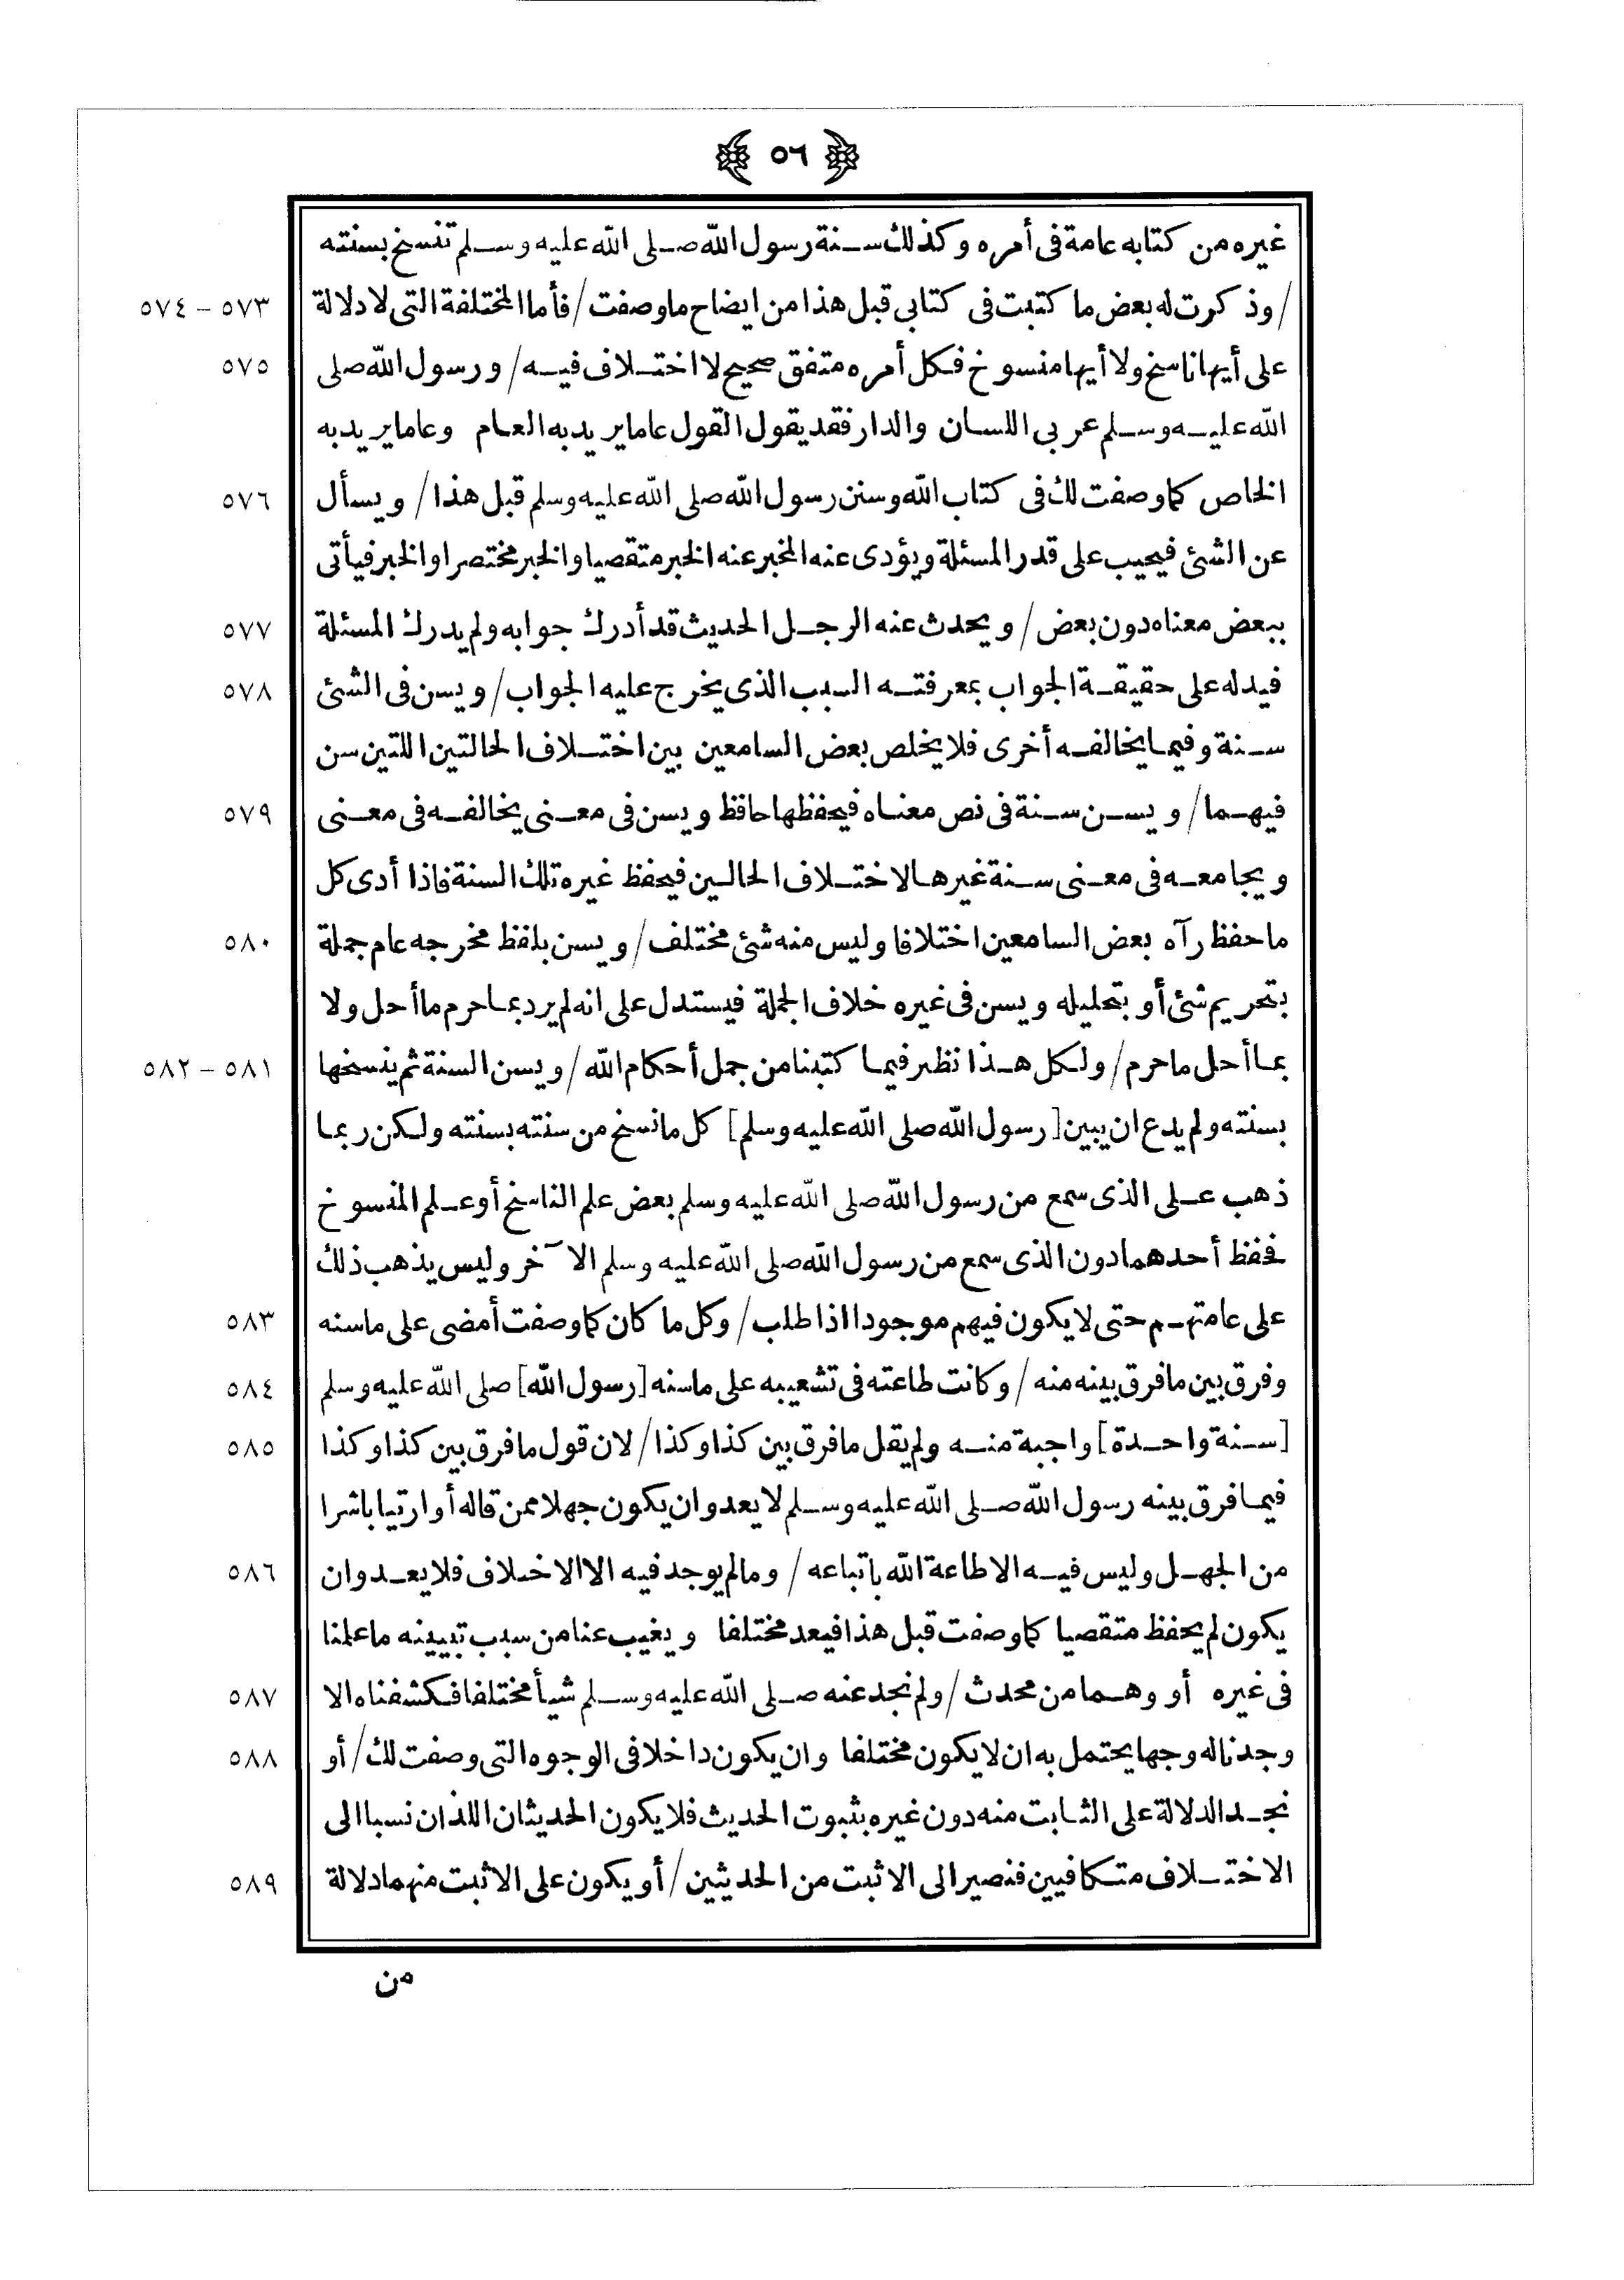 ٥٦
غيره من كتابه عامة فى أمره وكذلك سنة رسول الله صلى الله عليه وسلم تنسخ بسنته
/ وذكرت له بعض ما كتبت فى كتابى قبل هذا من ايضاح ما وصفت / فأما المختلفة التى لا دلالة ٥٧٣ – ٥٧٤
على أيها ناسخ ولا أيها منسوخ فكل أمره متفق صحيح لا اختلاف فيه / ورسول الله صلى ٥٧٥
الله عليه وسلم عربى اللسان والدار فقد يقول القول عاما يريد به العام وعاما يريد به
الخاص كما وصفت لك فى كتاب الله وسنن رسول الله صلى الله عليه وسلم قبل هذا / ويسأل ٥٧٦
عن الشئ فيجيب على قدر المسئلة ويؤدى عنه المخبر عنه الخبر متقصيا والخبر مختصرا والخبر فيأتى
ببعض معناه دون بعض / ويحدث عنه الرجل الحديث قد أدرك جوابه ولم يدرك المسئلة ٥٧٧
فيدله على حقيقة الجواب بمعرفته السبب الذى يخرج عليه الجواب / ويسن فى الشئ ٥٧٨
سنة وفيما يخالفه أخرى فلا يخلص بعض السامعين بين اختلاف الحالتين اللتين سن
فيهما / ويسن سنة فى نص معناه فيحفظها حافظ ويسن فى معنى يخالفه فى معنى ٥٧٩
ويجامعه فى معنى سنة غيرها لاختلاف الحالين فيحفظ غيره تلك السنة فاذا أدى كل
ما حفظ رآه بعض السامعين اختلافا وليس منه شئ مختلف / ويسن بلفظ مخرجه عام جملة ٥٨٠
بتحريم شئ أو بتحليله ويسن فى غيره خلاف الجملة فيستدل على انه لم يرد بما حرم ما أحل ولا
بما أحل ما حرم / ولكل هذا نظير فيما كتبنا من جمل أحكام الله / ويسن السنة ثم ينسخها ٥٨١ – ٥٨٢
بسنته ولم يدع ان يبين [رسول الله صلى الله عليه وسلم] كل ما نسخ من سنته بسنته ولكن ربما
ذهب على الذى سمع من رسول الله صلى الله عليه وسلم بعض علم الناسخ أو علم المنسوخ
فحفظ أحدهما دون الذى سمع من رسول الله صلى الله عليه وسلم الآخر وليس يذهب ذلك
على عامتهم حتى لا يكون فيهم موجودا اذا طلب / وكل ما كان كما وصفت أمضى على ما سنه ٥٨٣
وفرق بين ما فرق بينه منه / وكانت طاعته فى تشعيبه على ما سنه [رسول الله] صلى الله عليه وسلم ٥٨٤
[سنة واحدة] واجبة منه ولم يقل ما فرق بين كذا وكذا / لان قول ما فرق بين كذا وكذا ٥٨٥
فيما فرق بينه رسول الله صلى الله عليه وسلم لا يعدو ان يكون جهلا ممن قاله أو ارتيابا شرا
من الجهل وليس فيه الا طاعة الله باتباعه / وما لم يوجد فيه الا الاختلاف فلا يعدو ان ٥٨٦
يكون لم يحفظ متقصيا كما وصفت قبل هذا فيعد مختلفا ويغيب عنا من سبب تبيينه ما علمنا
فى غيره أو وهما من محدث / ولم نجد عنه صلى الله عليه وسلم شيأ مختلفا فكشفناه الا ٥٨٧
وجدنا له وجها يحتمل به ان لا يكون مختلفا وان يكون داخلا فى الوجوه التى وصفت لك / أو ٥٨٨
نجد الدلالة على الثابت منه دون غيره بثبوت الحديث فلا يكون الحديثان اللذان نسبا الى
الاختلاف متكافيين فنصير الى الاثبت من الحديثين / أو يكون على الاثبت منهما دلالة ٥٨٩
من